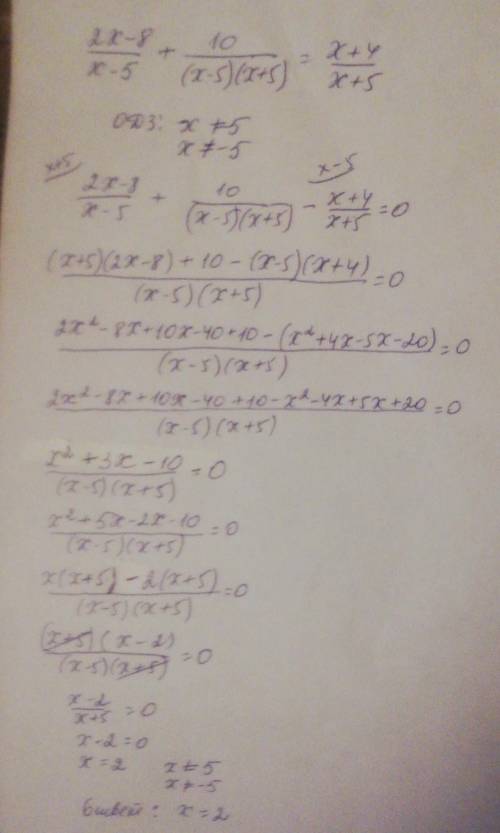 (2x-8)/(x-5) + 10/((x-5)(x+5)) = (x+4)/(x+5)
ОДЗ: x ≠ 5
x ≠ -5
x+5 x-5
(2x-8)/(x-5) + 10/((x-5)(x+5)) - (x+4)/(x+5) = 0
((x+5)(2x-8) + 10 - (x-5)(x+4))/((x-5)(x+5)) = 0
(2x²-8x+10x-40+10-(x²+4x-5x-20))/((x-5)(x+5)) = 0
(2x²-8x+10x-40+10-x²-4x+5x+20)/((x-5)(x+5)) = 0
(x²+3x-10)/((x-5)(x+5)) = 0
(x²+5x-2x-10)/((x-5)(x+5)) = 0
(x(x+5)-2(x+5))/((x-5)(x+5)) = 0
((x+5)(x-2))/((x-5)(x+5)) = 0
(x-2)/(x+5) = 0
x-2=0
x=2 x ≠ 5
x ≠ -5
Ответ: x=2